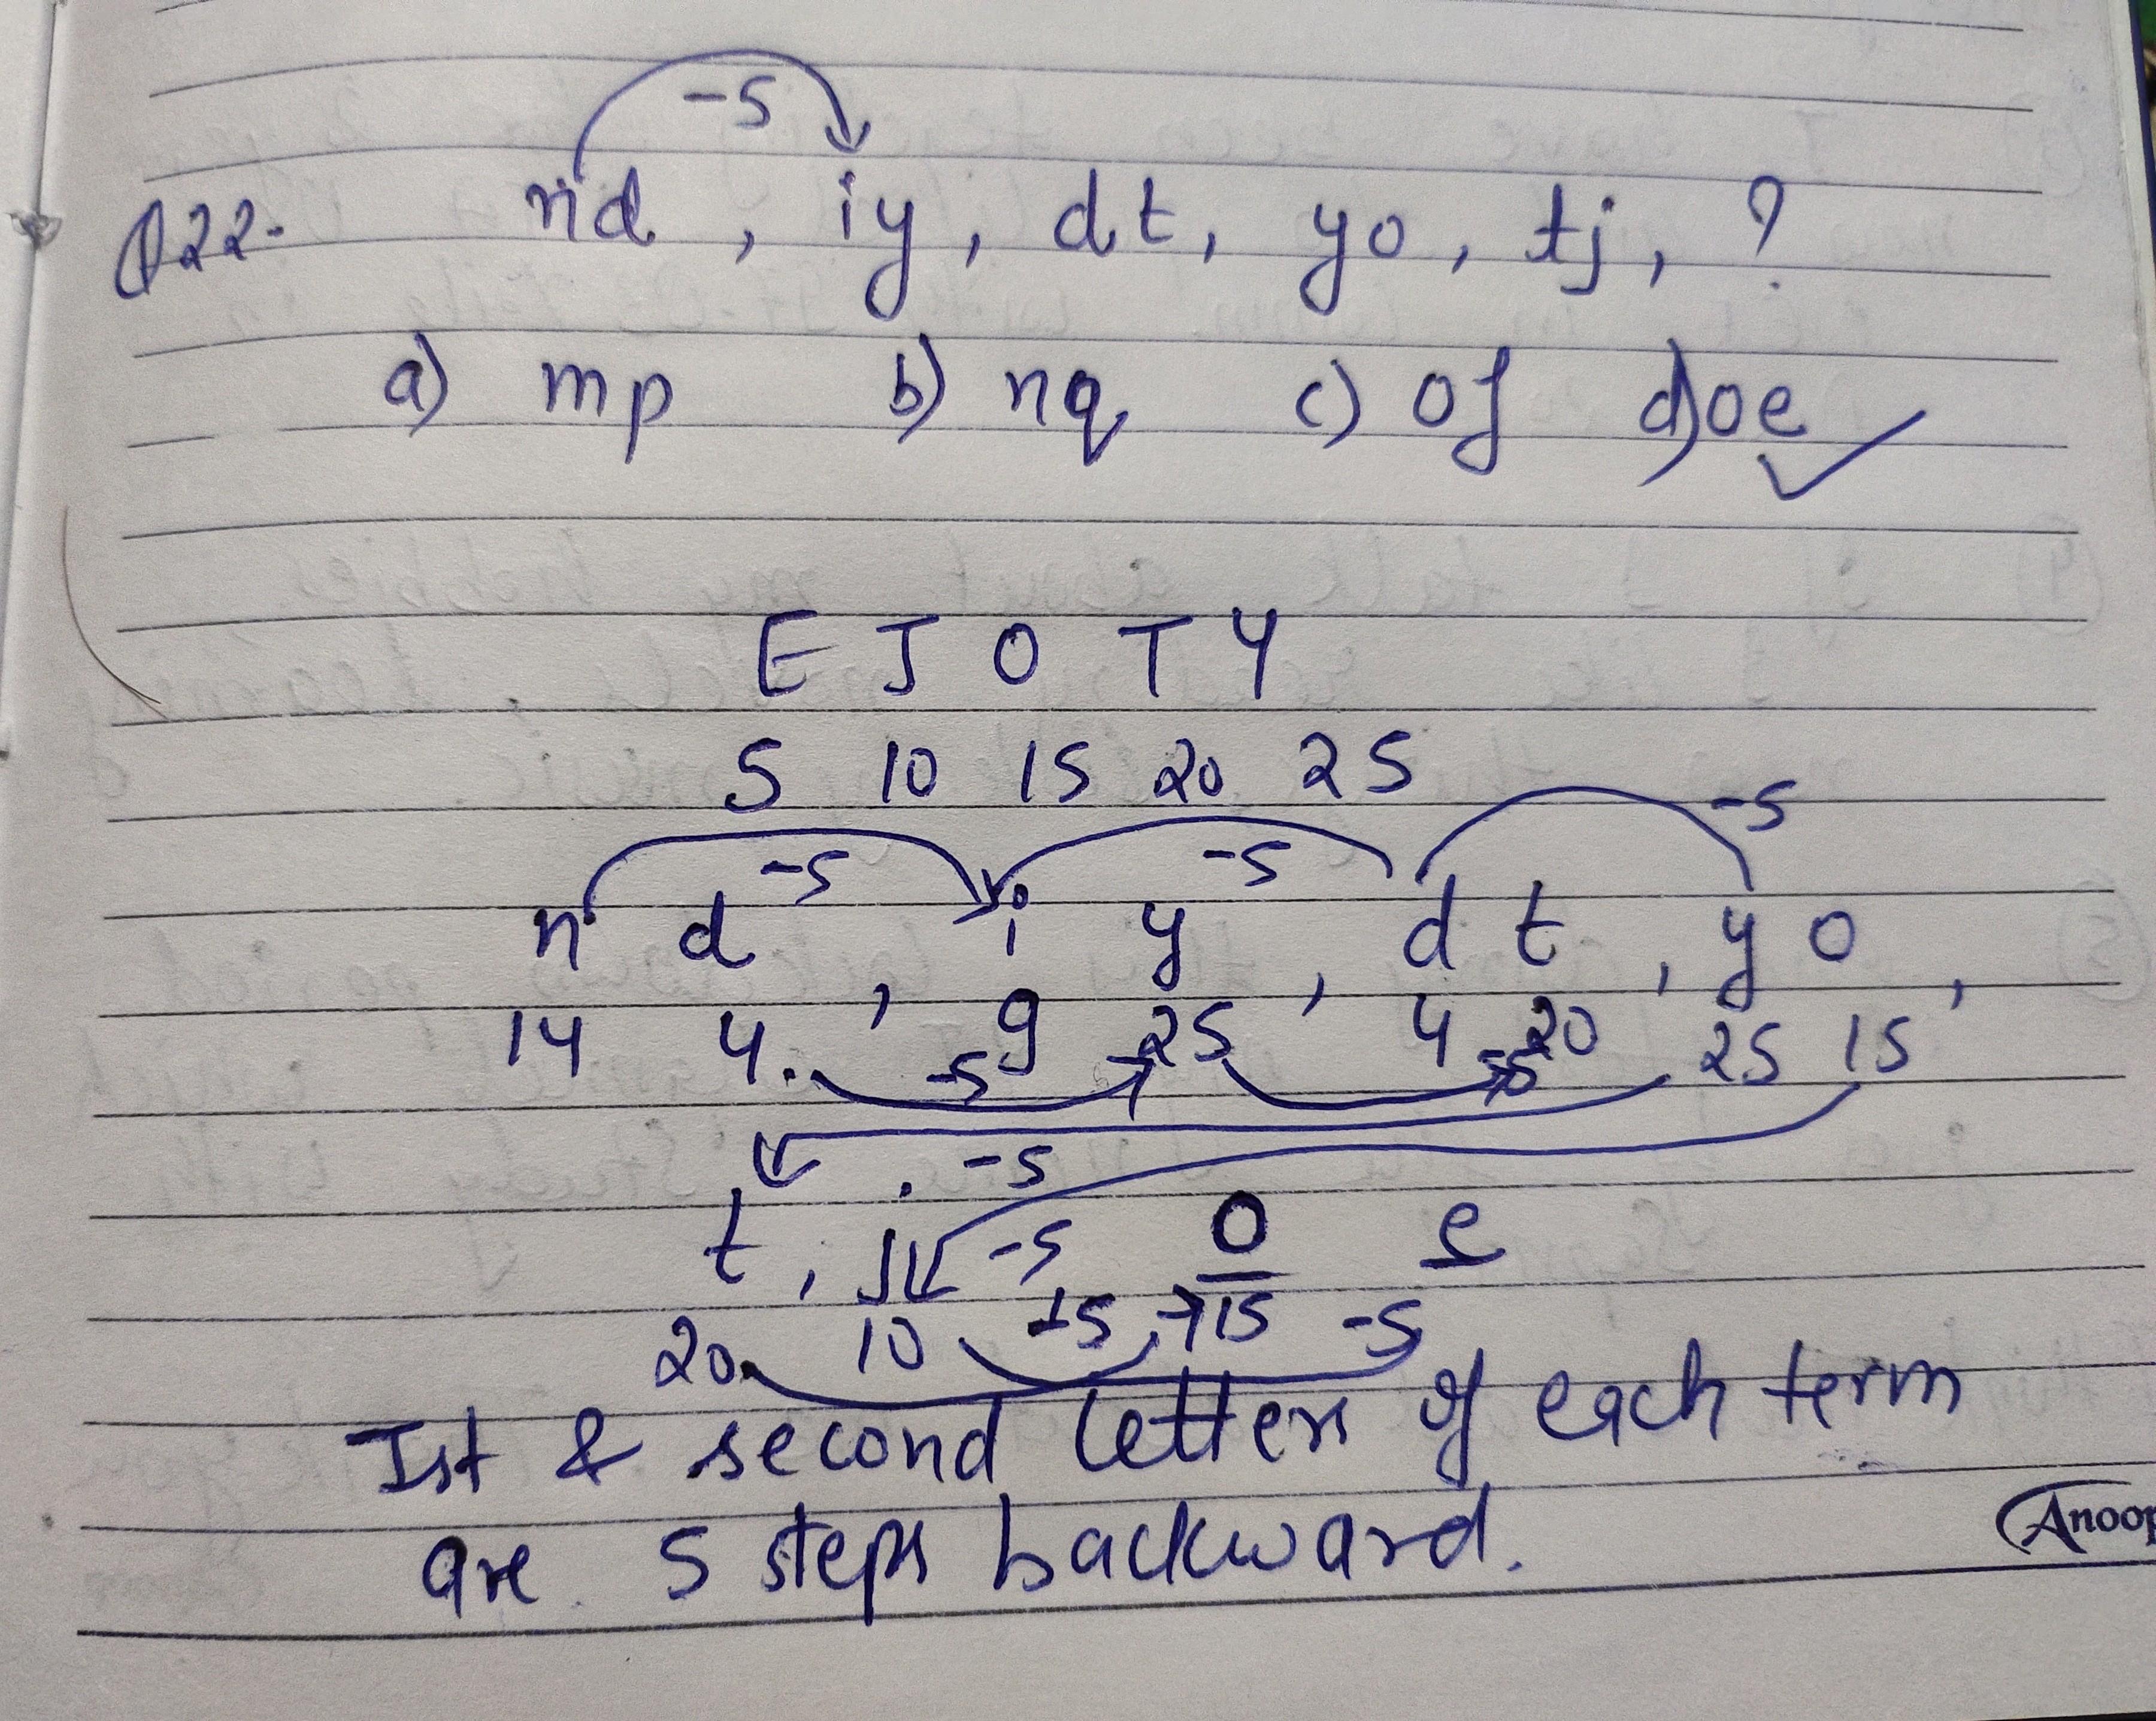 -5
Q22- nd, iy, dt, yo, tj, ?
a) mp b) nq c) of d) oe
E J O T Y
5 10 15 20 25
-5 -5 -5
n d , i y , d t , y o ,
14 4 9 25 4 20 25 15
-5 -5
-5
t , j -5 o e
20 10 -5 15 -5
Ist & second letters of each term
are 5 steps backward.
Anoop